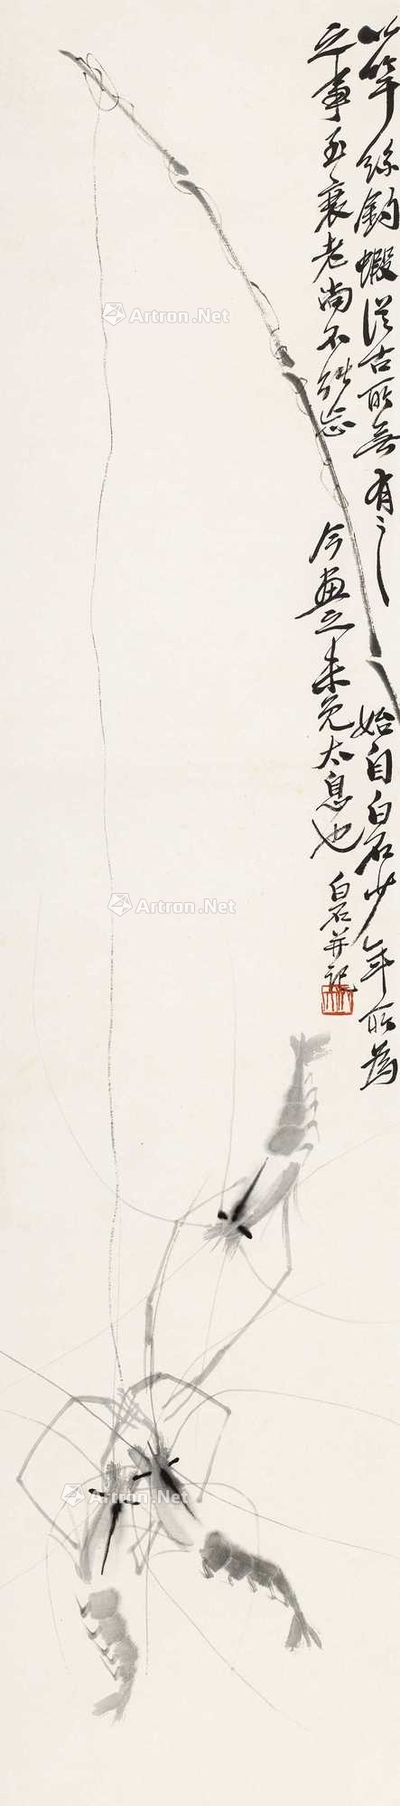 以竿絲釣蝦從古所無有之始自白石少年所為
之事至衰老尚不能忘今畫之未免太息也
白石并記
Artron.Net
Artron.Net
Artron.Net